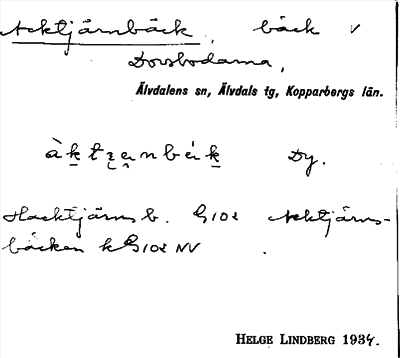 Acktjärnbäck, bäck v
Dovsbodarna,
Älvdalens sn, Älvdals tg, Kopparbergs län.
Dy.
Hacktjärns b. G102 Acktjärns-
bäcken k G102 NV
HELGE LINDBERG 1934.